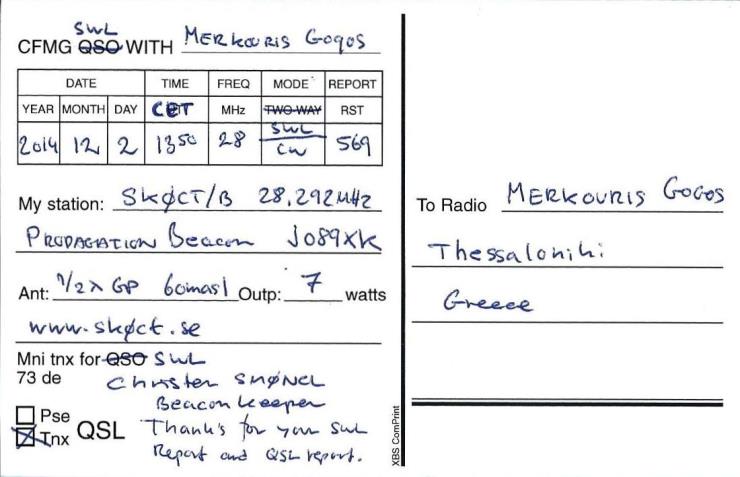 SWL
CFMG QSO WITH MERKOURIS GOGOS
DATE TIME FREQ MODE REPORT
YEAR MONTH DAY CET MHz TWO-WAY RST
2014 12 2 1350 28 SWL CW 569
My station: SKØCT/B 28,292MHz
PROPAGATION Beacon JO89XK
Ant: 1/2λ GP 60masl Outp: 7 watts
www.skøct.se
Mni tnx for QSO SWL
73 de Christer SMØNCL
Beacon keeper
Pse
Tnx QSL
Thank's for your SWL
Report and QSL report.
XBS ComPrint
To Radio MERKOURIS GOGOS
Thessaloniki
Greece